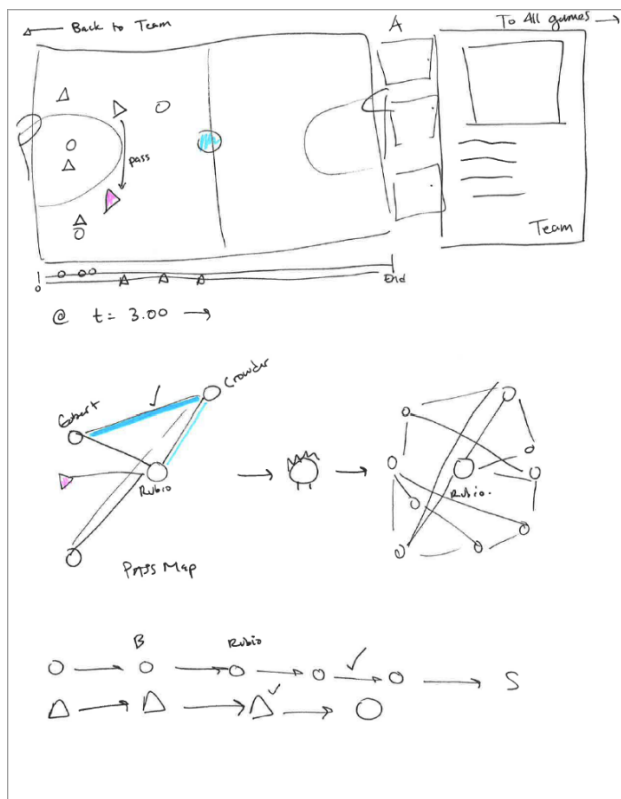 ← Back to Team
A
To All games →
pass
Team
0
End
@ t = 3.00 →
Crowder
Gobert
Rubio
Rubio.
Pass Map
B
Rubio
S